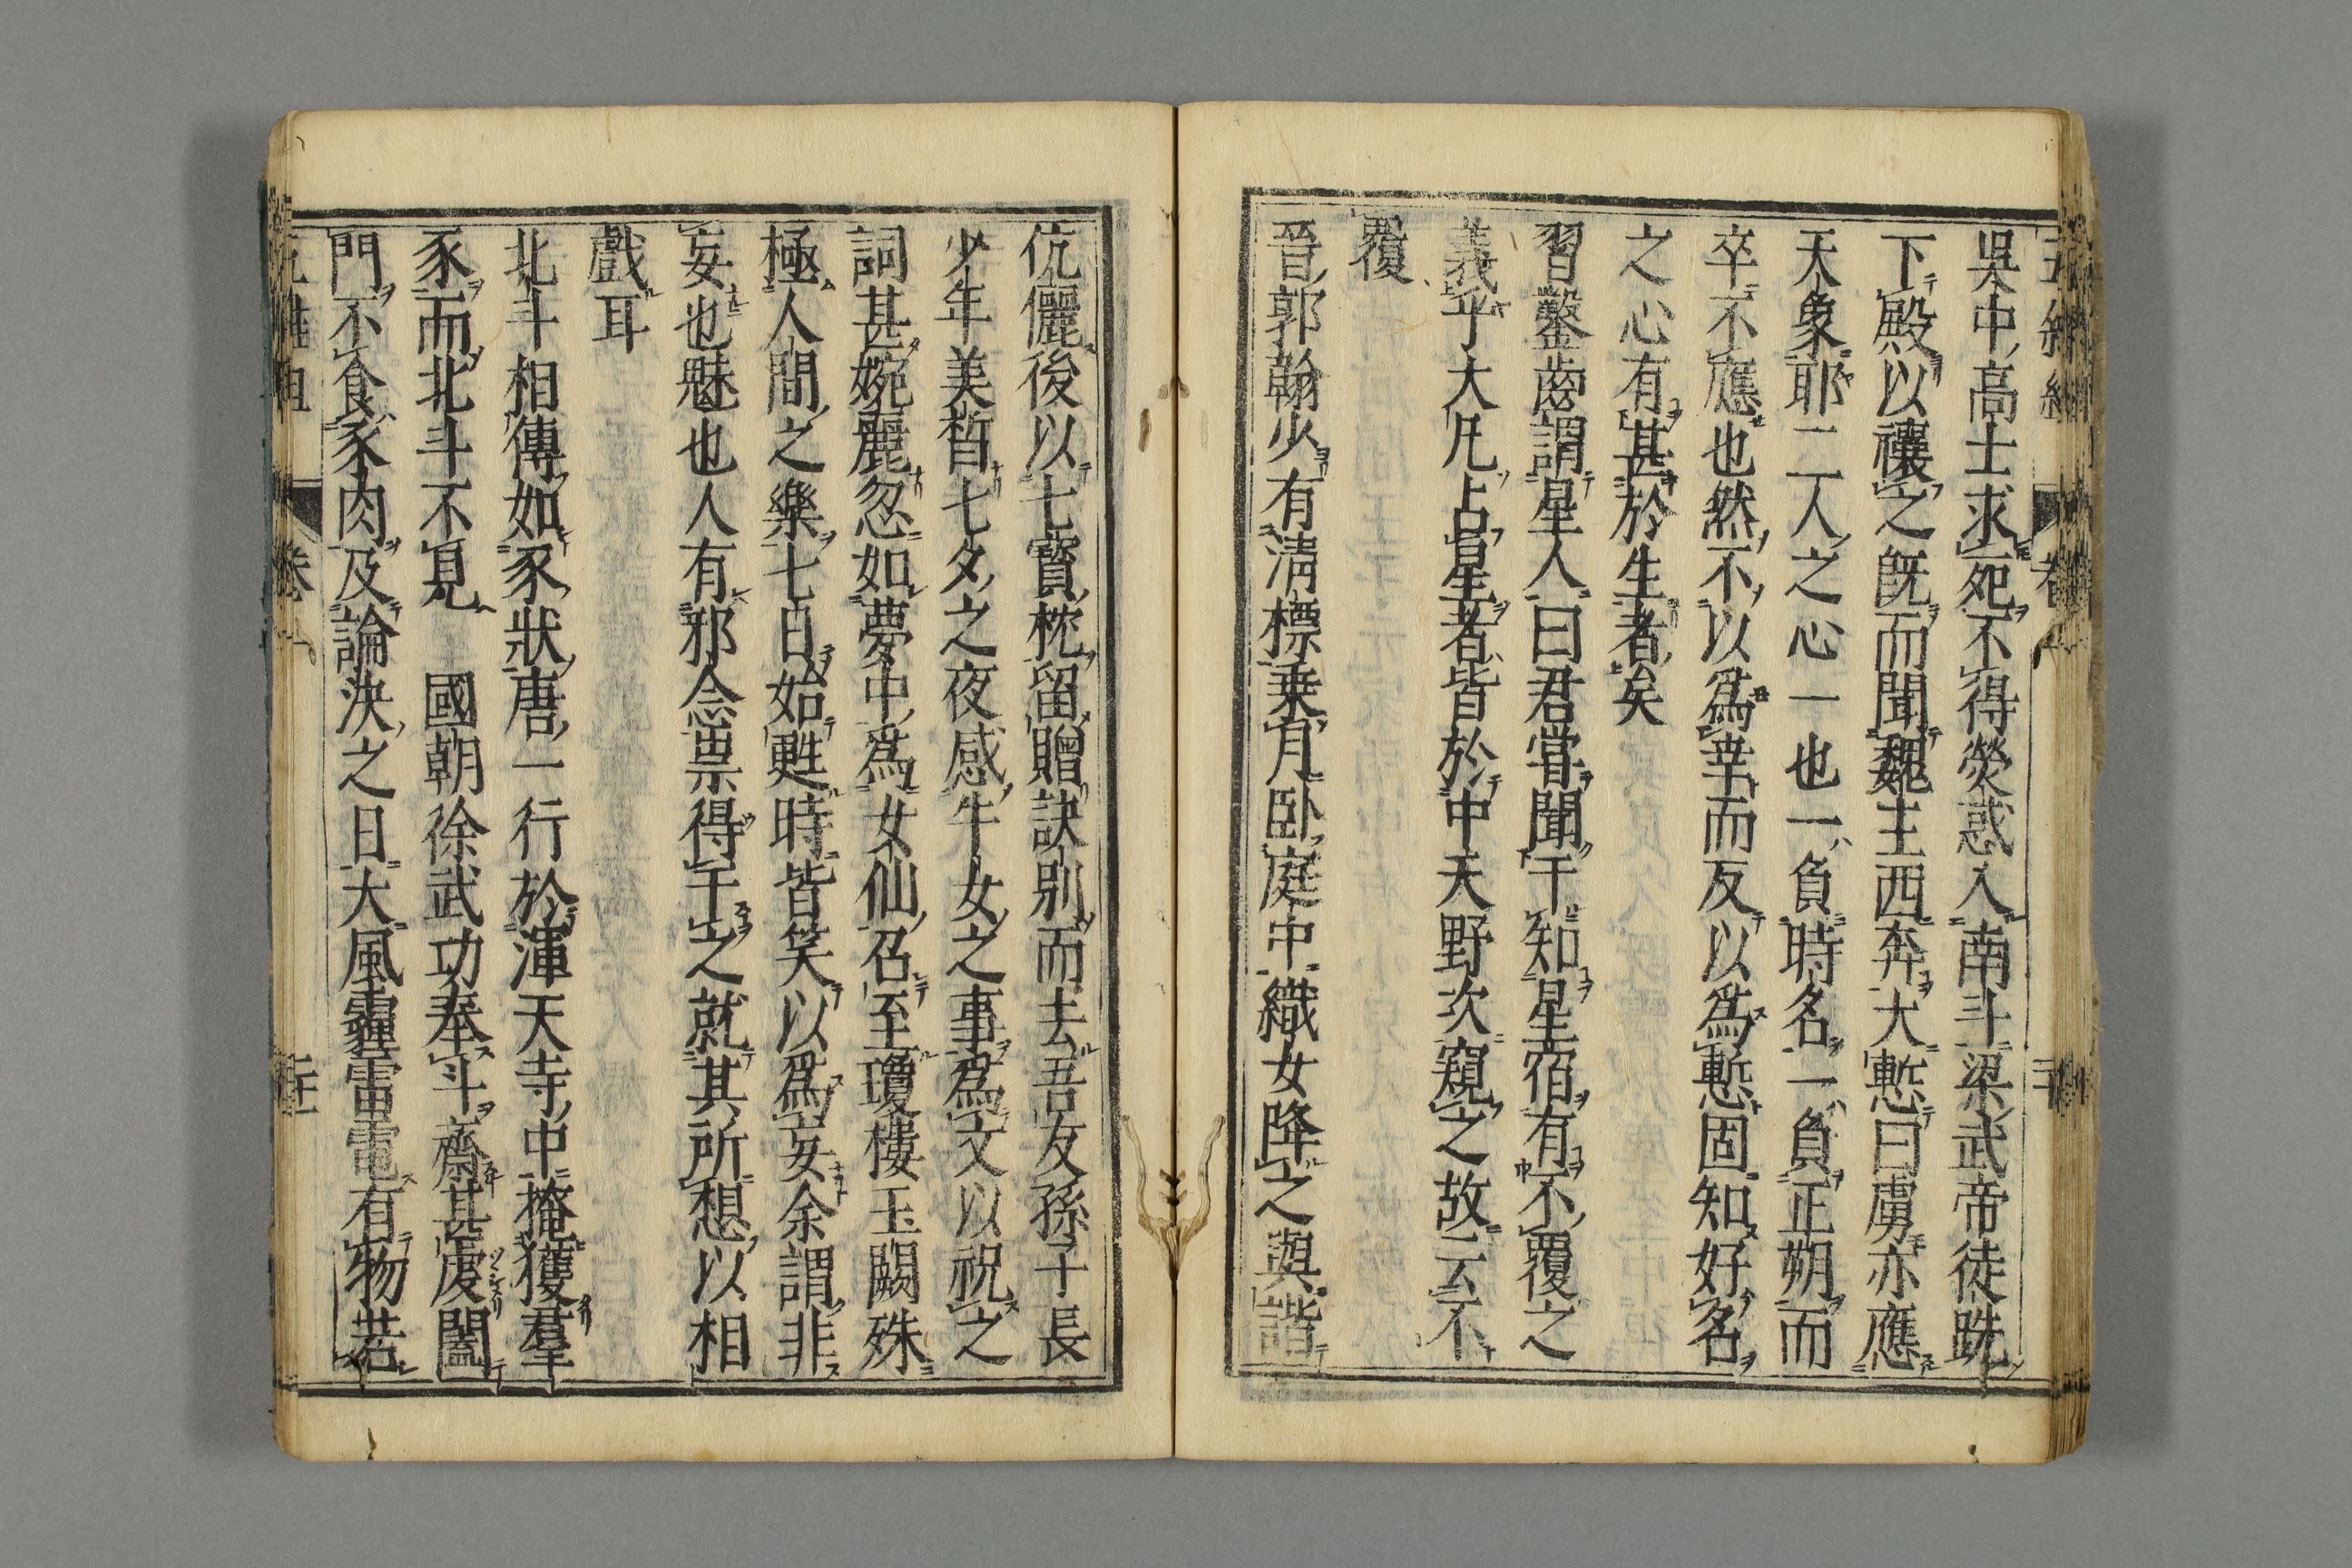 吳中高士求死不得熒惑入南斗梁武帝徒跣
下殿以禳之旣而聞魏主西奔大慙曰虜亦應
天象耶二人之心一也一負時名一負正朔而
卒不應也然不以爲幸而反以爲慙固知好名
之心有甚於生者矣
習鑿齒謂星人曰君嘗聞干知星宿有不覆之
義乎大凡占星者皆於中天野次窺之故云不
覆
晉郭翰少有淸標乗月卧庭中織女降之與諧
伉儷後以七寳枕留贈訣別而去吾友孫子長
少年美晳七夕之夜感牛女之事爲文以祝之
詞甚婉麗忽如夢中爲女仙召至瓊樓玉闕殊
極人間之樂七日始甦時皆笑以爲妄余謂非
妄也魅也人有邪念祟得干之就其所想以相
戲耳
北斗相傳如豕狀唐一行於渾天寺中掩獲羣
豕而北斗不見　國朝徐武功奉斗齋甚虔闔
門不食豕肉及論決之日大風霾雷電有物若
卷一